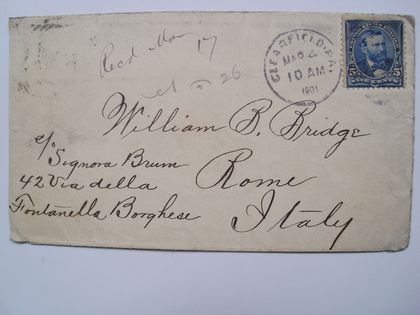 Recd Mar 17
26
CLEARFIELD, PA.
MAR 4
10 AM
1901
5 5
William B. Bridge
c/o Signora Brum
42 Via della
Fontanella Borghese
Rome
Italy